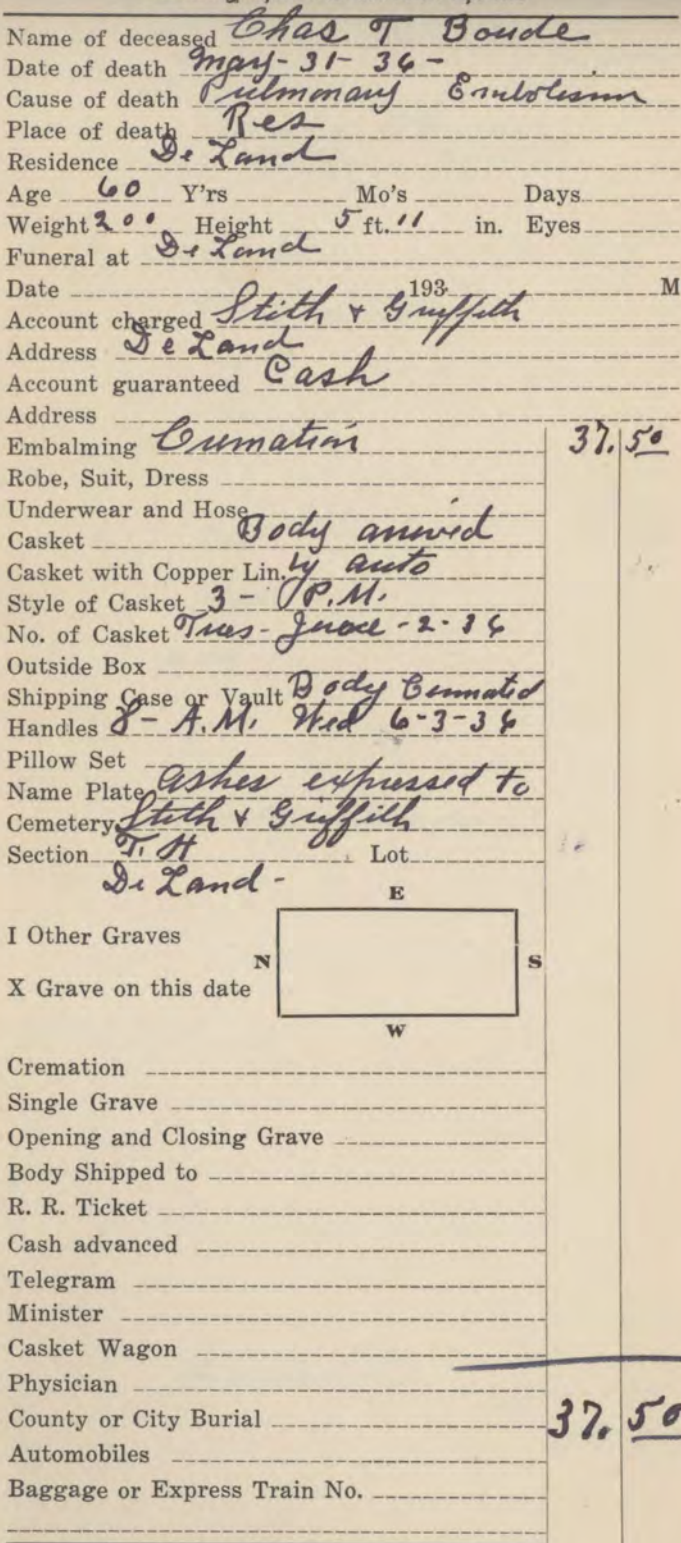 Name of deceased Chas T Boude
Date of death May-31-36-
Cause of death Pulmonary Embolism
Place of death Res
Residence De Land
Age 60 Y'rs Mo's Days
Weight 200 Height 5 ft. 11 in. Eyes
Funeral at De Land
Date 193 M
Account charged Stith & Griffith
Address De Land
Account guaranteed Cash
Address
Embalming Cremation 37.50
Robe, Suit, Dress
Underwear and Hose
Casket Body arrived
Casket with Copper Lin. by auto
Style of Casket 3- P.M.
No. of Casket Tues- June-2-36
Outside Box
Shipping Case or Vault Body Cremated
Handles 8- A.M. Wed 6-3-36
Pillow Set
Name Plate Ashes expressed to
Cemetery Stith & Griffith
Section F. H Lot
De Land-
E
I Other Graves
N S
X Grave on this date
W
Cremation
Single Grave
Opening and Closing Grave
Body Shipped to
R. R. Ticket
Cash advanced
Telegram
Minister
Casket Wagon
Physician
County or City Burial 37.50
Automobiles
Baggage or Express Train No.